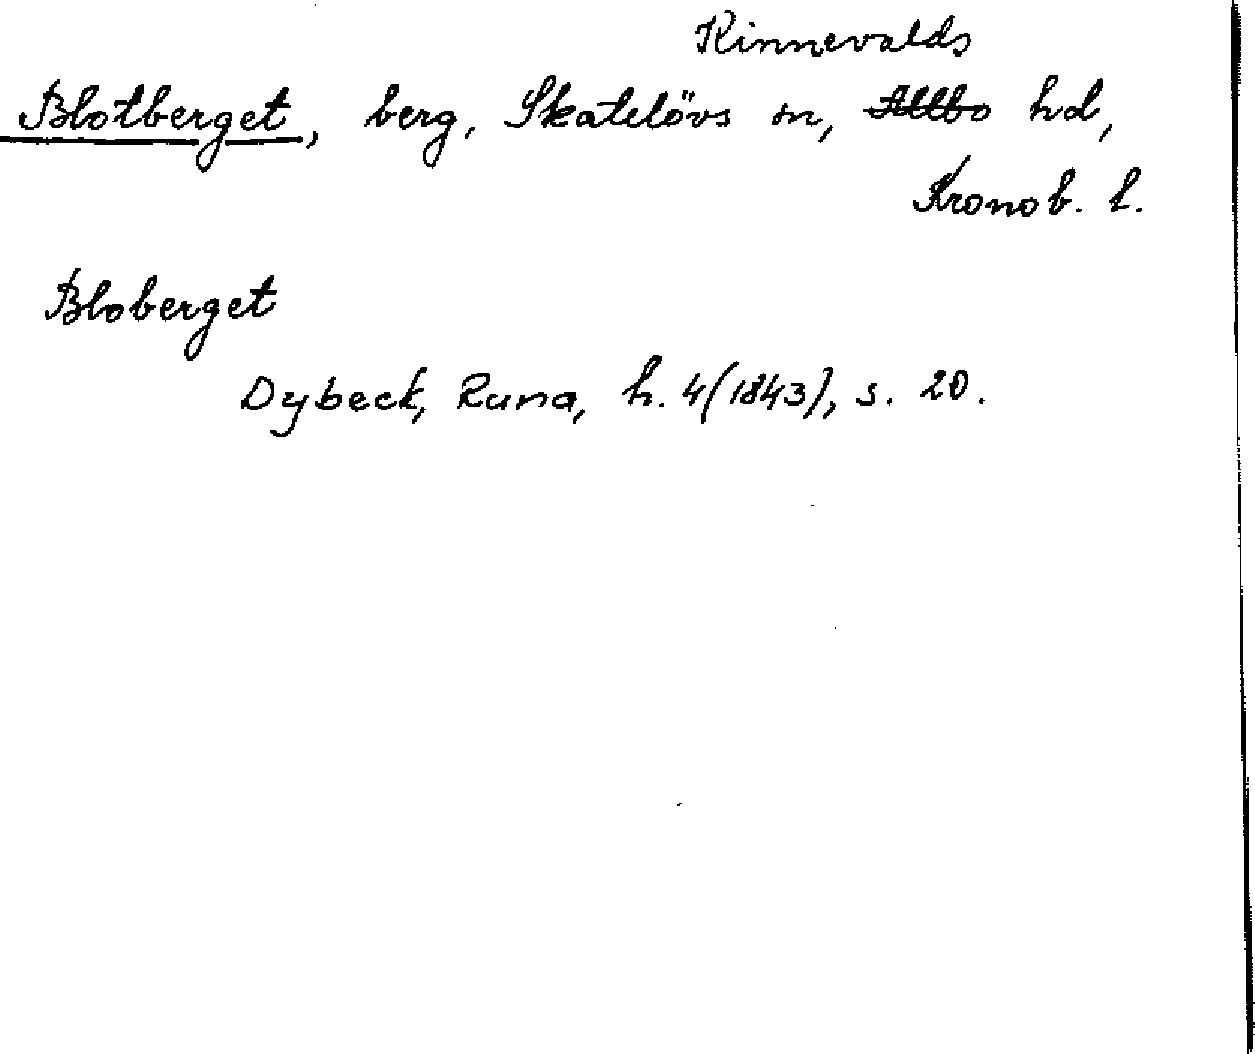 Kinnevalds
Blotberget, berg, Skatelövs sn, Allbo hd,
Kronob. l.
Bloberget
Dybeck, Runa, h. 4 (1843), s. 20.